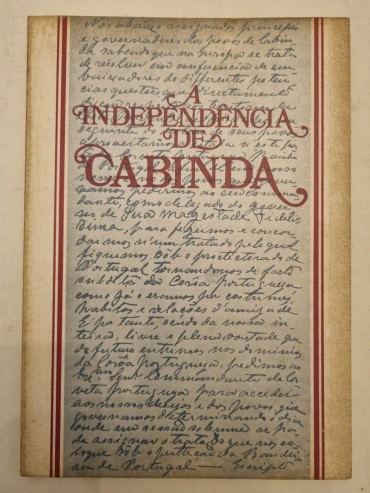 Nós abaixo assignados, principes
e governadores dos povos de Cabin
da sabendo que na Europa se trata
de resolver em conferencia de em
baixadores de differentes poten
cias questões que directamente
A
INDEPENDÊNCIA
DE
CABINDA
vamos pedirmos ao seu comman
dante, como delegado do gover
no de Sua Magestade Fidelis
sima, para fazermos e concor
darmos n'um tratado pelo qual
fiquemos sob o protectorado de
Portugal tornando-nos de facto
subditos da Corôa portugueza
como já o eramos por costumes,
habitos e relações d'amizade
E portanto, sendo da nossa in
teira, livre e plena vontade que
de futuro entremos nos dominios
da Corôa portugueza, pedimos ao
Exmo. Snr. Commandante da cor
veta portugueza para acceder
aos nossos desejos e dos povos que
governamos determinando o dia,
onde em sessão solemne se ha
de assignar o tratado que nos co
loque sob a protecção da Bandei
ra de Portugal — Escripto